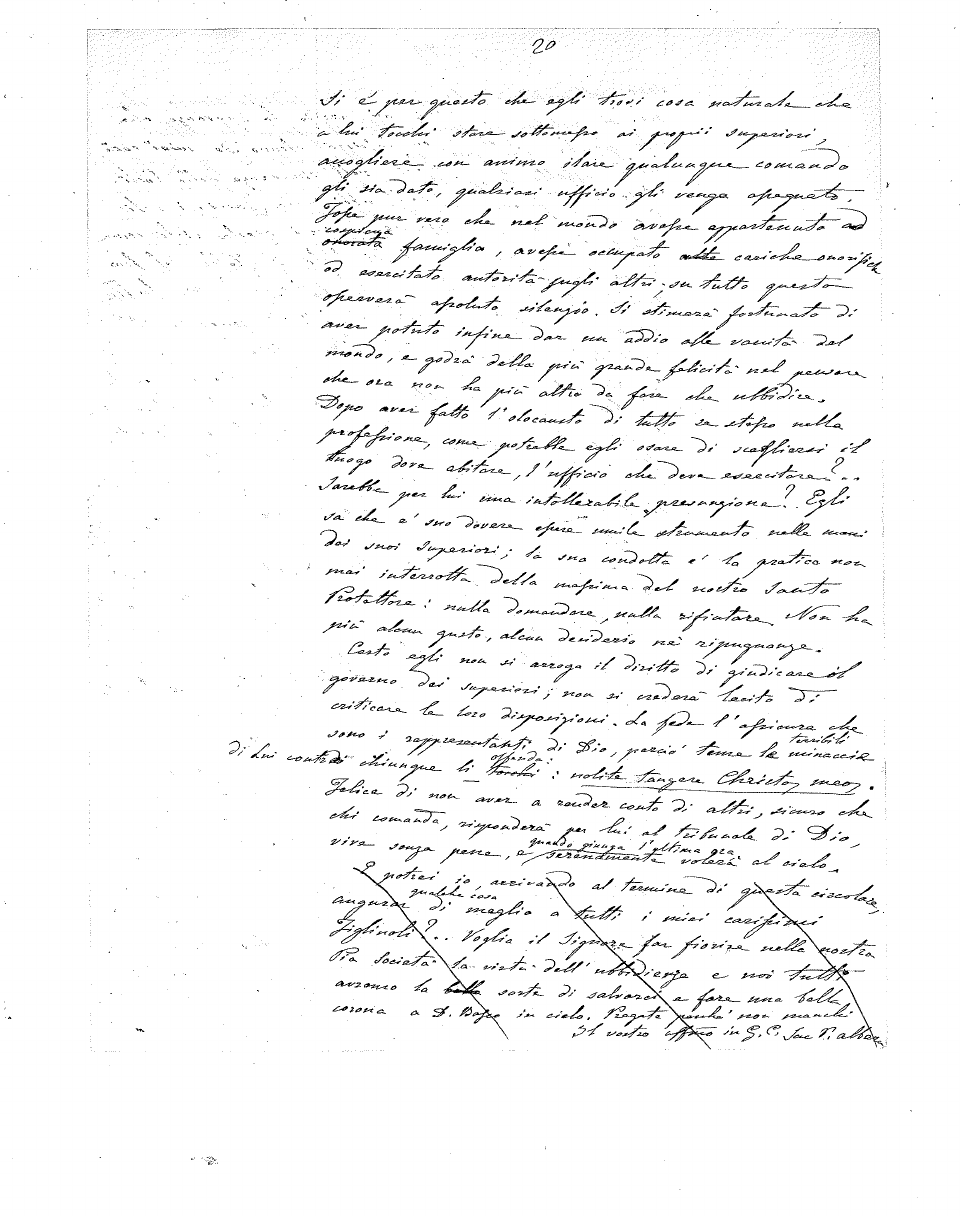 20
Si è per questo che egli trovi cosa naturale che
a lui tocchi stare sottomesso ai proprii superiori,
accogliere con animo ilare qualunque comando
gli sia dato, qualsiasi ufficio gli venga assegnato.
Fosse pur vero che nel mondo avesse appartenuto ad
cospicua
onorata famiglia, avesse occupato alte cariche onorifiche
od esercitato autorità sugli altri; su tutto questo
osserverà assoluto silenzio. Si stimerà fortunato di
aver potuto infine dar un addio alle vanità del
mondo, e godrà della più grande felicità nel pensare
che ora non ha più altro da fare che ubbidire.
Dopo aver fatto l'olocausto di tutto se stesso nella
professione, come potrebbe egli osare di scegliersi il
luogo dove abitare, l'ufficio che deve esercitare?..
Sarebbe per lui una intollerabile presunzione? Egli
sa che è suo dovere essere umile strumento nelle mani
dei suoi Superiori; la sua condotta è la pratica non
mai interrotta della massima del nostro Santo
Protettore: nulla domandare, nulla rifiutare. Non ha
più alcun gusto, alcun desiderio nè ripugnanze.
Certo egli non si arroga il diritto di giudicare il
governo dei superiori; non si crederà lecito di
criticare le loro disposizioni. La fede l'assicura che
sono i rappresentanti di Dio, perciò teme le minaccie
terribili
di Lui contro chiunque li tocchi: nolite tangere Christos meos.
offenda:
Felice di non aver a render conto di altri, sicuro che
chi comanda, risponderà per lui al tribunale di Dio,
vive senza pene, e serenamente volerà al cielo.
quando giunga l'ultima ora
E potrei io, arrivando al termine di questa circolare,
qualche cosa
augurar di meglio a tutti i miei carissimi
Figliuoli?.. Voglia il Signore far fiorire nella nostra
Pia società la virtù dell'ubbidienza e noi tutti
avremo la bella sorte di salvarci e fare una bella
corona a D. Bosco in cielo. Pregate perchè non manchi
Il vostro affmo in G. C. Sac P. Albera